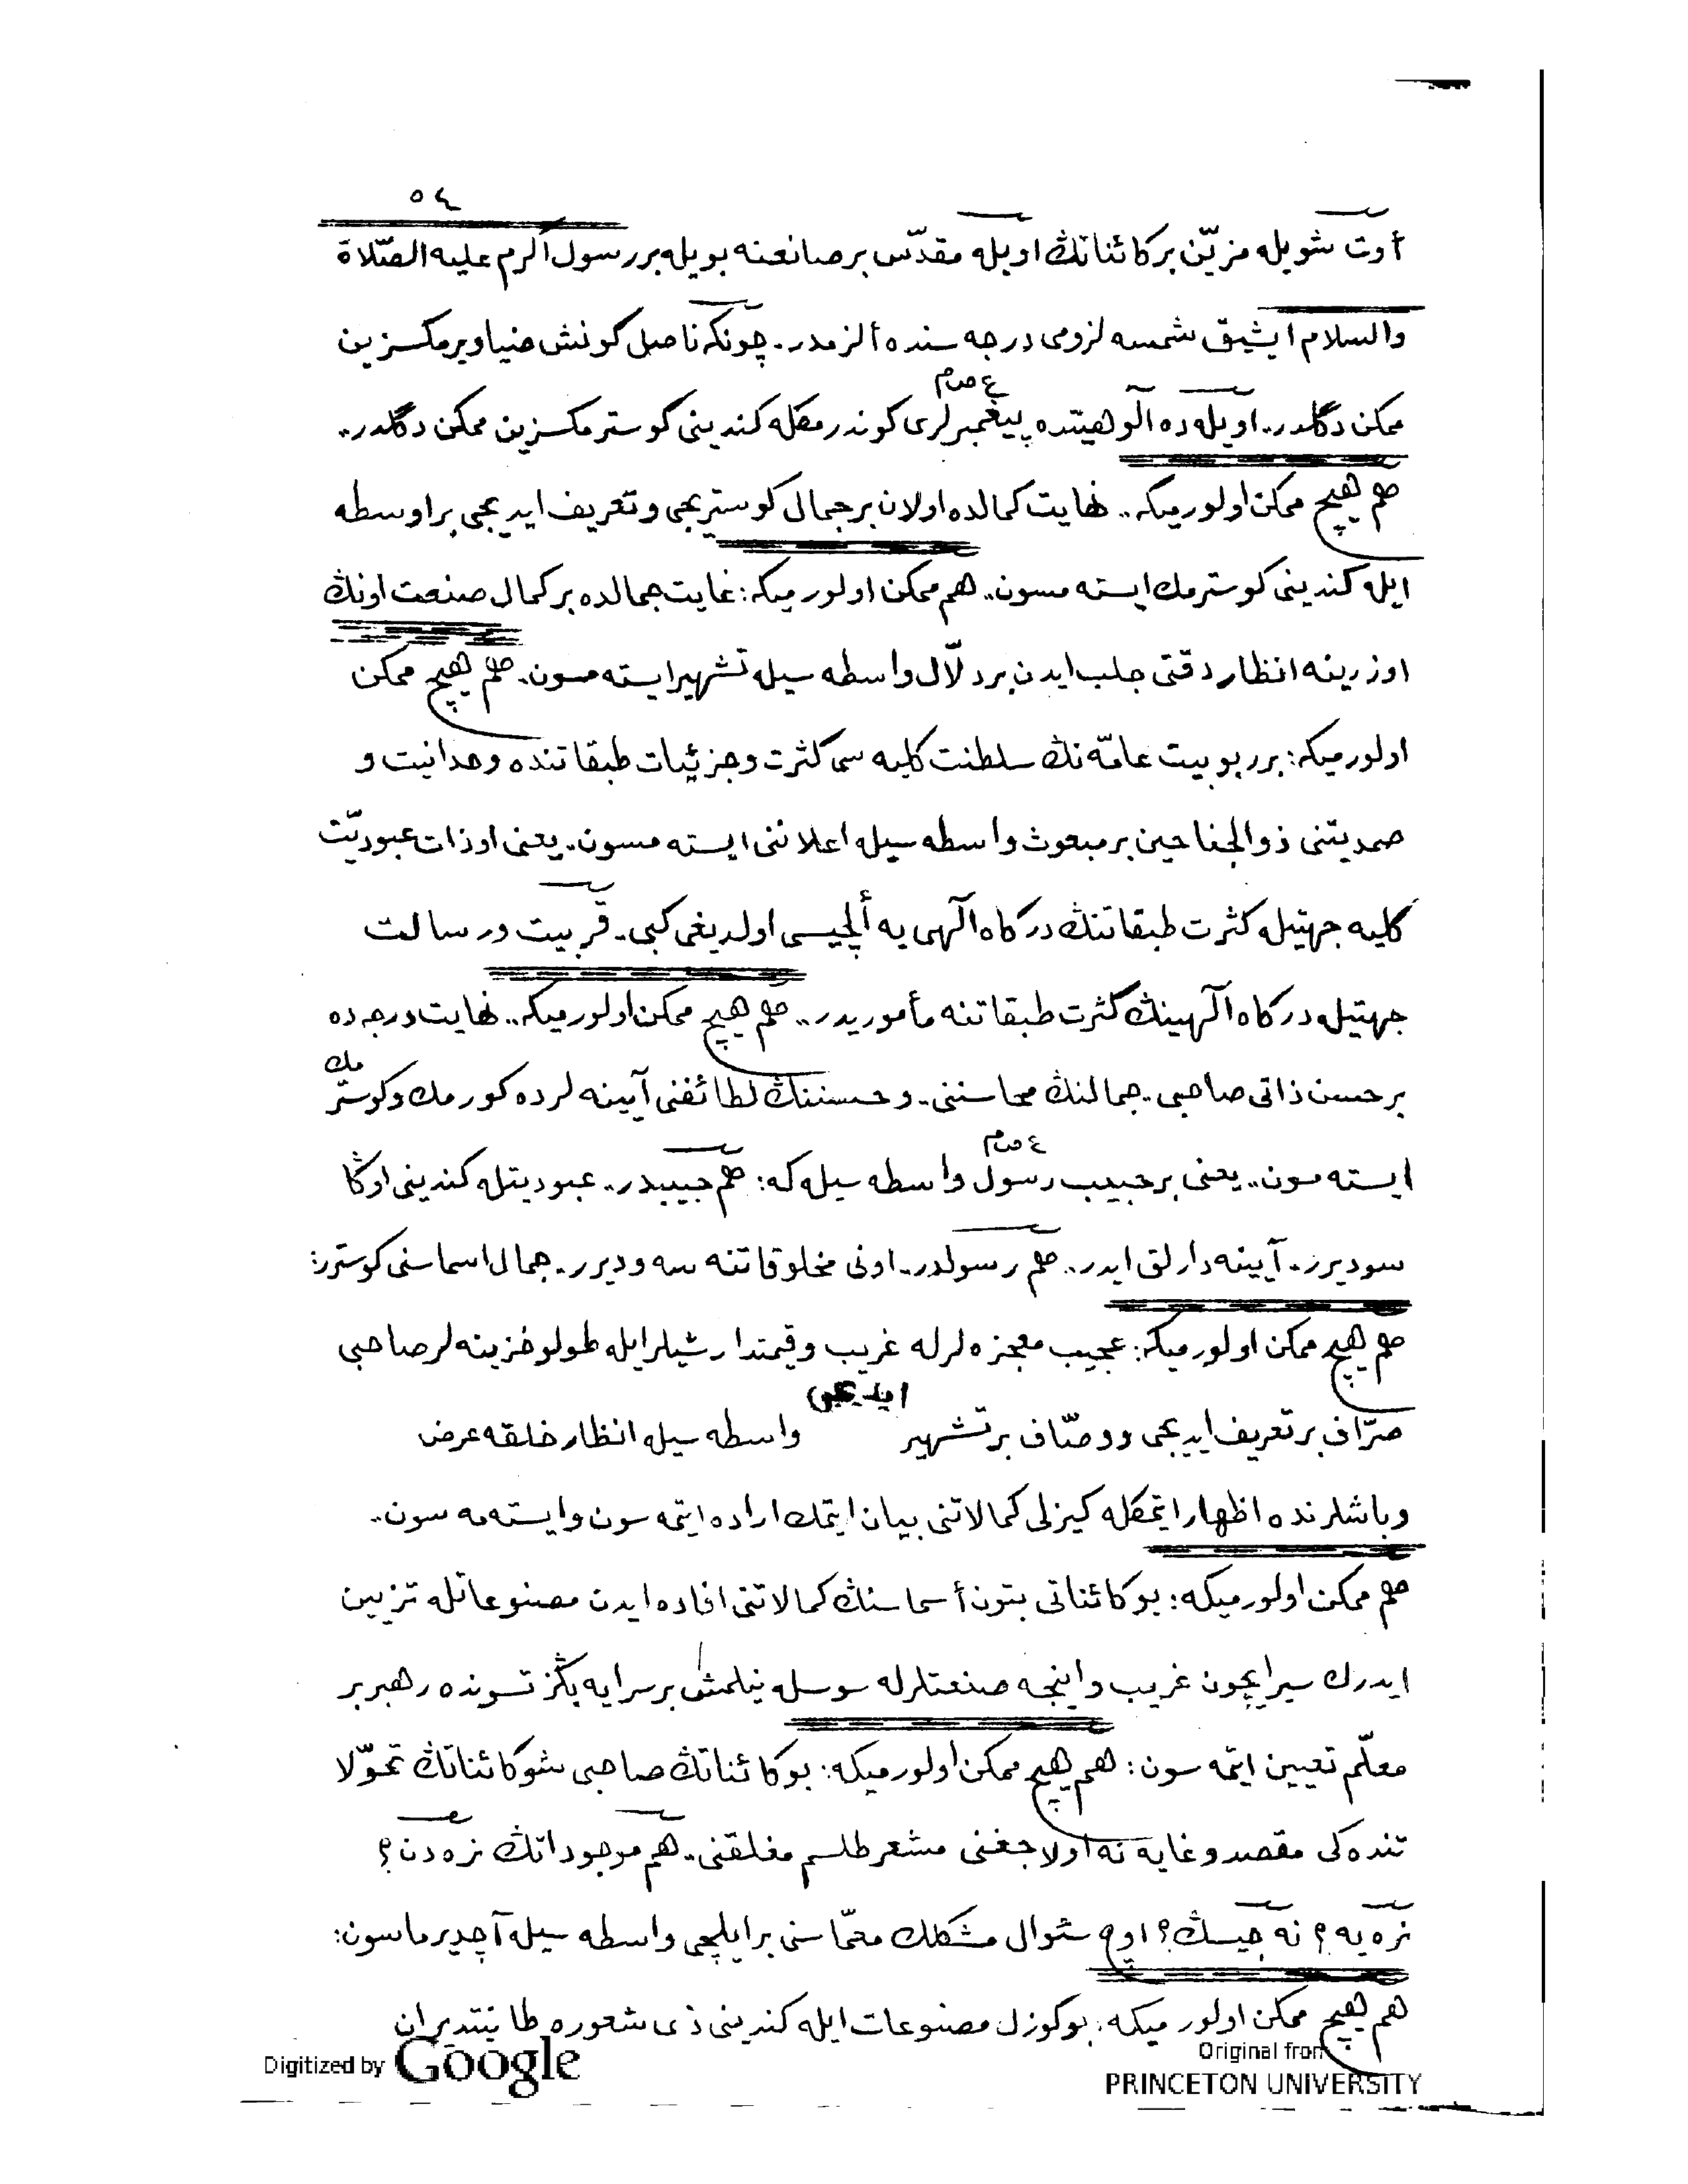 ٥٤
أوت شويله مزيّن بر كائناتڭ اويله مقدّس بر صانعنه بويله بر رسول أكرم عليه الصّلاة
والسلام ايشيق شمسه لزومى درجه سنده ألزمدر. چونكه ناصل كونش ضيا ويرمكسزين
ممكن دگلدر. اويله ده ألوهيتده پيغمبرلرى كوندرمكله كندينى كوسترمكسزين ممكن دگلدر..
ع ص م
هم هيچ ممكن اولورميكه.. نهايت كمالده اولان بر جمال كوستريجى و تعريف ايديجى بر اوسطه
ايله كندينى كوسترمك ايسته مسون.. هم ممكن اولورميكه: غايت جمالده بر كمال صنعت اونڭ
اوزرينه انظار دقتى جلب ايدن بر دلّال واسطه سيله تشهير ايسته مسون. هم هيچ ممكن
اولورميكه: بر ربوبيت عامّه نڭ سلطنت كليه سى كثرت و جزئيات طبقاتنده وحدانيت و
صمديتنى ذوالجناحين بر مبعوث واسطه سيله اعلاننى ايسته مسون. يعنى اوذات عبوديّت
كليه جهتيله كثرت طبقاتنڭ درگاه الٓهى يه ألچيسى اولديغى كبى. قربيت و رسالت
جهتيله درگاه الٓهينڭ كثرت طبقاتنه مأموريدر.. هم هيچ ممكن اولورميكه.. نهايت درجه ده
بر حسن ذاتى صاحبى. جمالنڭ محاسننى. و حسننڭ لطائفنى آيينه لرده كورمك و كوسترمك
ايسته مسون.. يعنى بر حبيب رسول واسطه سيله كه: هم حبيبدر.. عبوديتله كندينى اوڭا
ع ص م
سوديرر. آيينه دارلق ايدر.. هم رسولدر. اونى مخلوقاتنه سه وديرر. جمال اسماسنى كوسترر:
هم هيچ ممكن اولورميكه: عجيب معجزه لرله غريب و قيمتدار شيلر ايله طولو خزينه لر صاحبى
صرّاف بر تعريف ايديجى و وصّاف بر تشهير ايديجى واسطه سيله انظار خلقه عرض
و باشلرنده اظهار ايتمكله كيزلى كمالاتنى بيان ايتمك اراده ايتمه سون و ايسته مه سون..
هم ممكن اولورميكه: بو كائناتى بتون أسماسنڭ كمالاتنى افاده ايدن مصنوعاتله تزيين
ايدرك سير ايچون غريب و اينجه صنعتلرله سوسله نيلمش بر سرايه بڭزتسونده رهبر بر
معلّم تعيين ايتمه سون: هم هيچ ممكن اولورميكه: بو كائناتڭ صاحبى شو كائناتڭ تحوّلا
تنده كى مقصد و غايه نه اولاجغنى مشعر طلسم مغلقنى. هم موجوداتڭ نره دن؟
نره يه؟ نه جيسڭ؟ اوچ سئوال مشكلك معمّاسنى بر ايلچى واسطه سيله آچديرماسون:
هم هيچ ممكن اولور ميكه: بو كوزل مصنوعات ايله كندينى ذى شعوره طانيتديران
Digitized by Google
Original from
PRINCETON UNIVERSITY